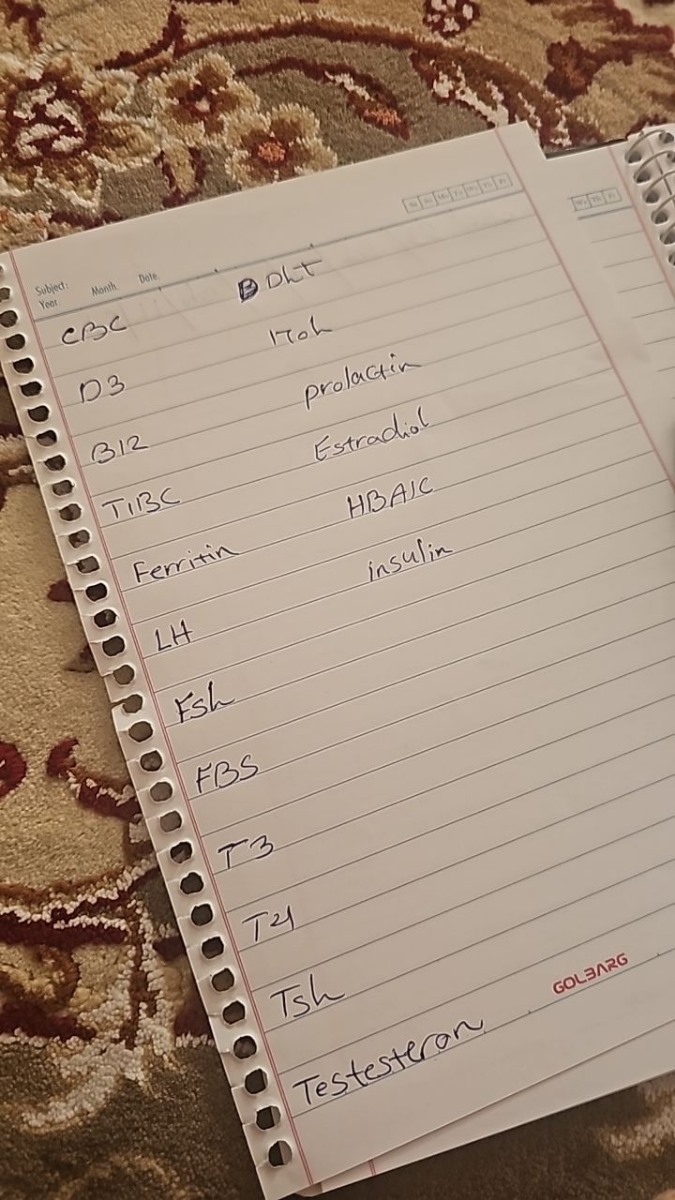 Subject:
Year. Month. Date.
CBC
D3
B12
TIBC
Ferritin
LH
Fsh
FBS
T3
T4
Tsh
Testesteron
DhT
17oh
prolactin
Estradiol
HBA1C
insulin
GOLBARG